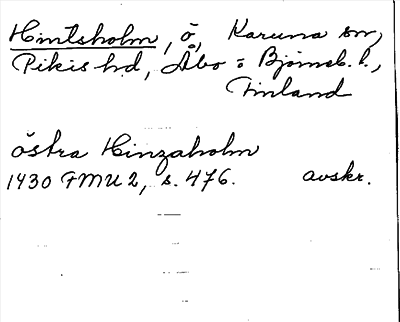 Hintsholm, ö, Karuna sn,
Pikis hd, Åbo o Björneb. l.,
Finland
östra Hinzaholm
1430 FMU 2, s. 476. avskr.